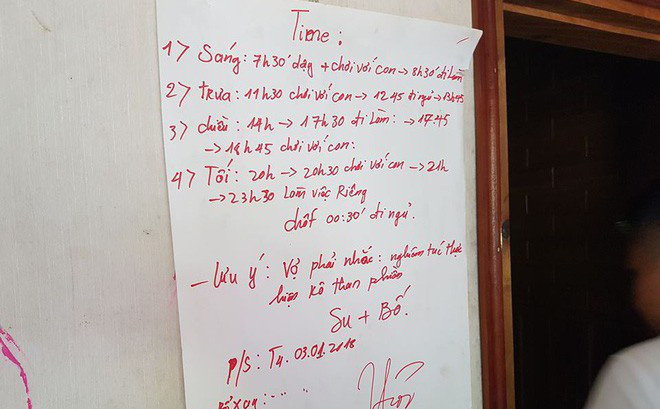 Time:
1) Sáng: 7h30' dậy + chơi với con → 8h30' đi làm
2) trưa: 11h30 chơi với con → 12 45 đi ngủ → 13h45
3) chiều: 14h → 17h30 đi làm: → 17.45
→ 18h45 chơi với con:
4) Tối: 20h → 20h30 chơi với con → 21h
→ 23h30 Làm việc Riêng
chốt 00:30' đi ngủ.
- Lưu ý: Vợ phải nhắc: nghiêm túc thực
hiện kô than phiền
Su + Bố.
P/S: T4. 03.01.2018